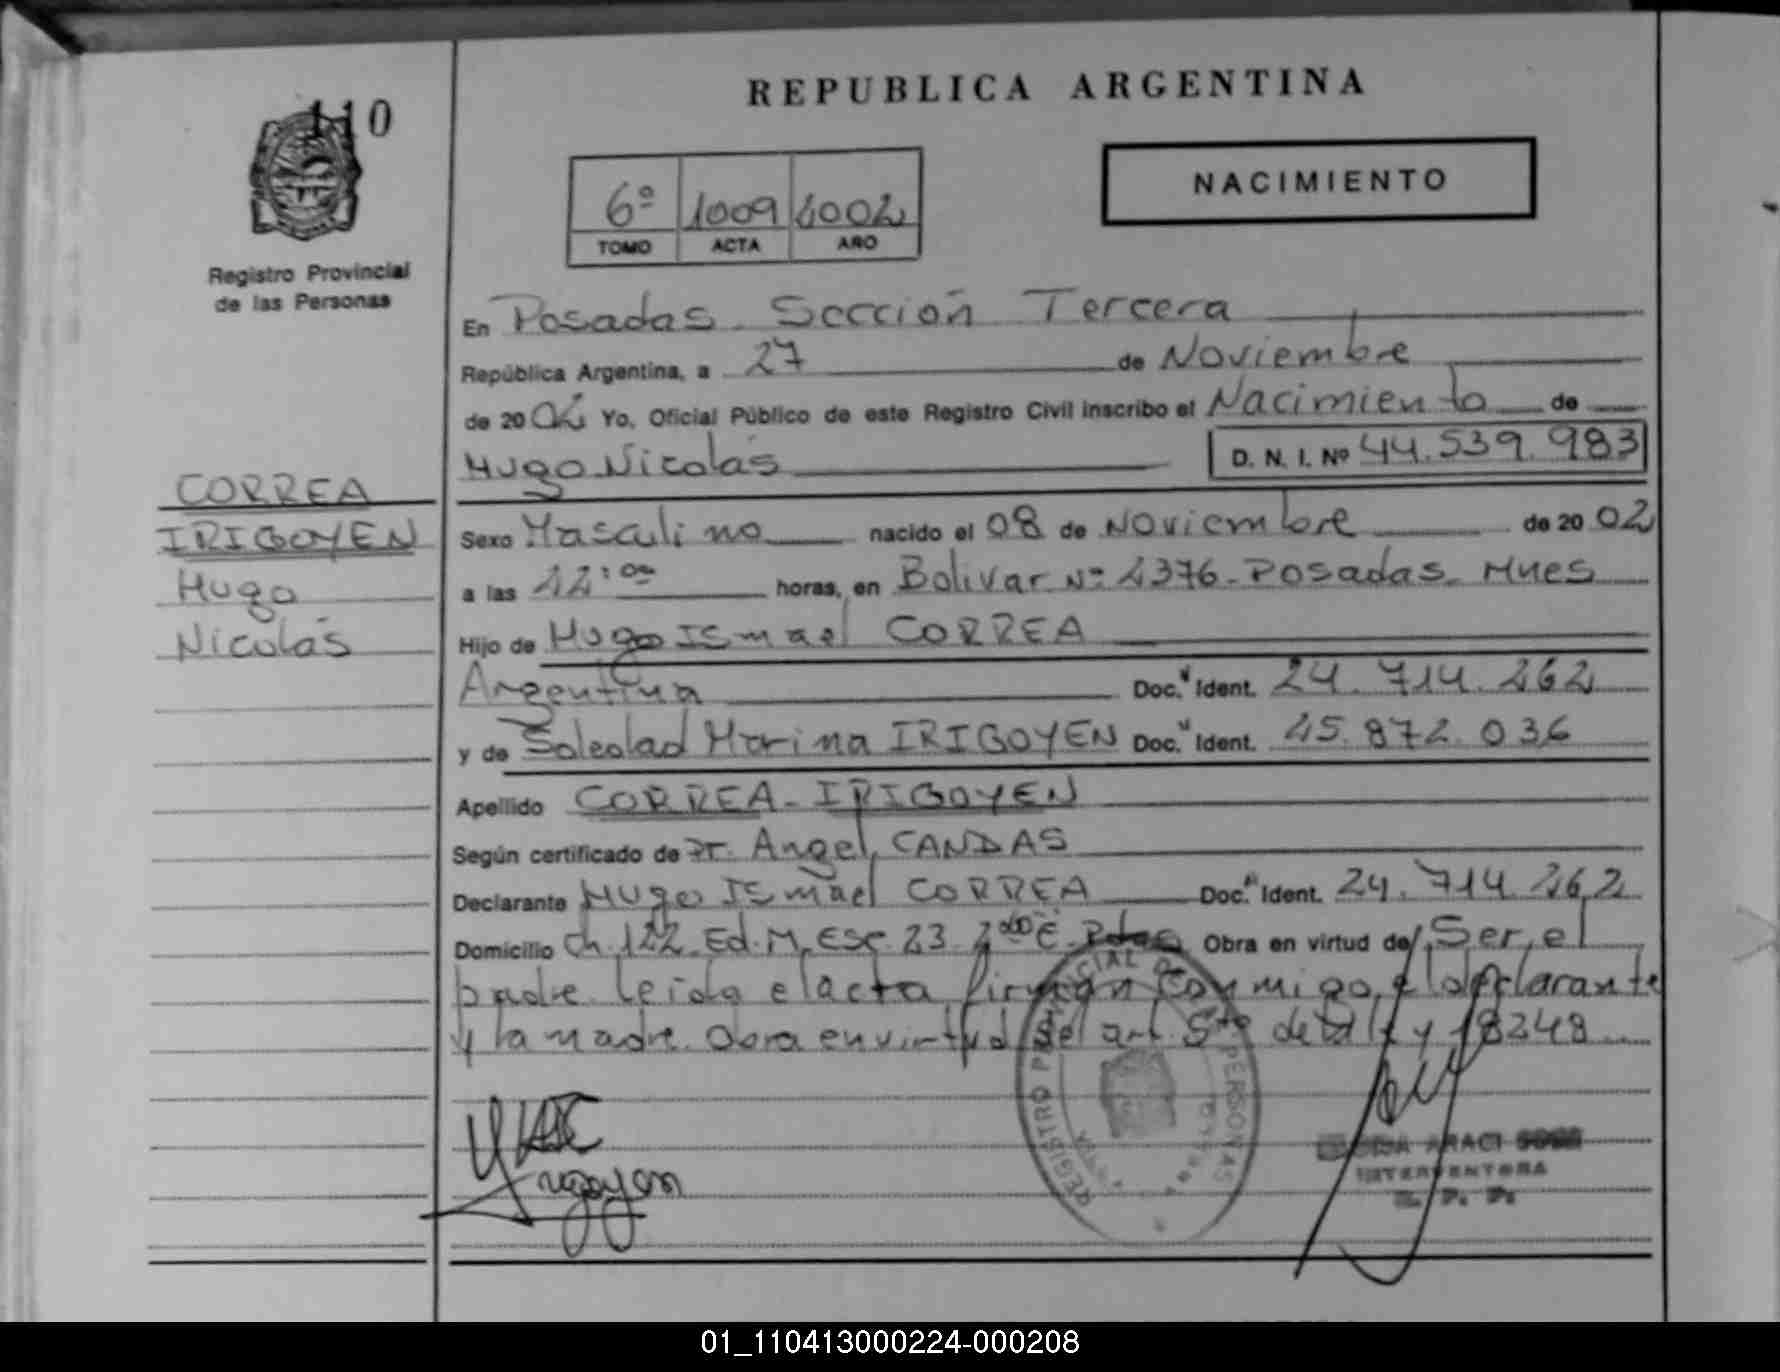 110
REPUBLICA ARGENTINA
NACIMIENTO
6º 1009 2002
TOMO ACTA AÑO
Registro Provincial
de las Personas
En Posadas Sección Tercera
República Argentina, a 27 de Noviembre
de 2002 Yo, Oficial Público de este Registro Civil inscribo el Nacimiento de
Hugo Nicolás D. N. I. Nº 44.539.983
CORREA
IRIGOYEN
Hugo
Nicolás
Sexo Masculino nacido el 08 de Noviembre de 2002
a las horas, en Bolivar Nº 2376 Posadas Mnes
Hijo de Hugo Ismael CORREA
Argentina Doc. Ident. 24.714.262
y de Soledad Marina IRIGOYEN Doc. Ident. 25.872.036
Apellido CORREA - IRIGOYEN
Según certificado de Dr. Angel CANDAS
Declarante Hugo Ismael CORREA Doc. Ident. 24.714.262
Domicilio Ch. 122 Ed. M. Esc. 23 Pdas Obra en virtud de Ser el
padre. Leida el acta firman conmigo el declarante
y la madre. Obra en virtud del art. 5to de la ley 18248
REGISTRO PROVINCIAL DE LAS PERSONAS
Irigoyen
ARACI
INTERVENTORA
R. P. P.
01_110413000224-000208